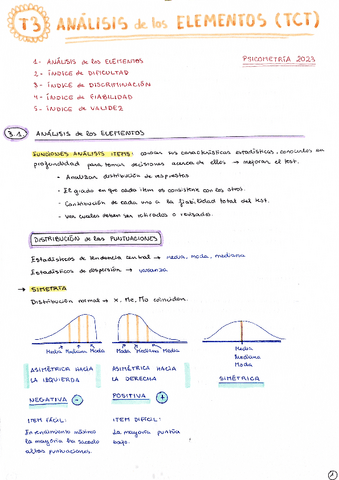 T3 ANÁLISIS de los ELEMENTOS (TCT)
PSICOMETRÍA 2023
1- ANÁLISIS de los ELEMENTOS
2- ÍNDICE de DIFICULTAD
3- ÍNDICE de DISCRIMINACIÓN
4- ÍNDICE de FIABILIDAD
5- ÍNDICE de VALIDEZ
3.1. ANÁLISIS de los ELEMENTOS
FUNCIONES ANÁLISIS ITEMS: conocer sus características estadísticas, conocerlos en
profundidad para tomar decisiones acerca de ellos → mejorar el test.
- Analizan distribución de respuestas
- El grado en que cada ítem es consistente con los otros.
- Contribución de cada uno a la fiabilidad total del test.
- Ver cuales deben ser retirados o revisados.
DISTRIBUCIÓN de las PUNTUACIONES
Estadísticos de tendencia central → media, moda, mediana
Estadísticos de dispersión → varianza
→ SIMETRÍA
Distribución normal → x, Me, Mo coinciden.
Media Mediana Moda
Moda Mediana Media
Media
Mediana
Moda
ASIMÉTRICA HACIA
LA IZQUIERDA
ASIMÉTRICA HACIA
LA DERECHA
SIMÉTRICA
NEGATIVA -
POSITIVA +
ITEM FÁCIL:
En rendimiento máximo
la mayoría ha sacado
altas puntuaciones.
ITEM DIFÍCIL:
La mayoría puntúa
bajo.